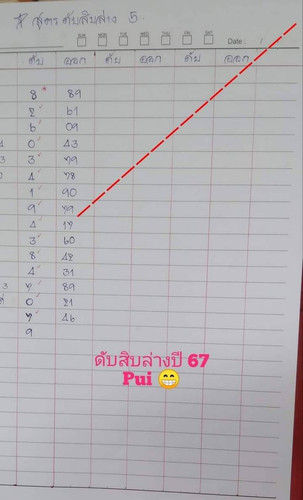 * สูตร ดับสิบล่าง 5
SUN MON TUE WED THU FRI SAT Date : /
ดับ ออก ดับ ออก ดับ ออก
8 * 89
2 ✓ 61
6 ✓ 09
0 ✓ 43
3 3 ✓ 79
4 ✓ 78
1 ✓ 90
9 ✓ 79
4 ✓ 17
3 ✓ 60
8 ✓ 42
4 ✓ 31
3 7 ✓ 89
0 ✓ 21
7 ✓ 46
9
ดับสิบล่างปี 67
Pui 😁